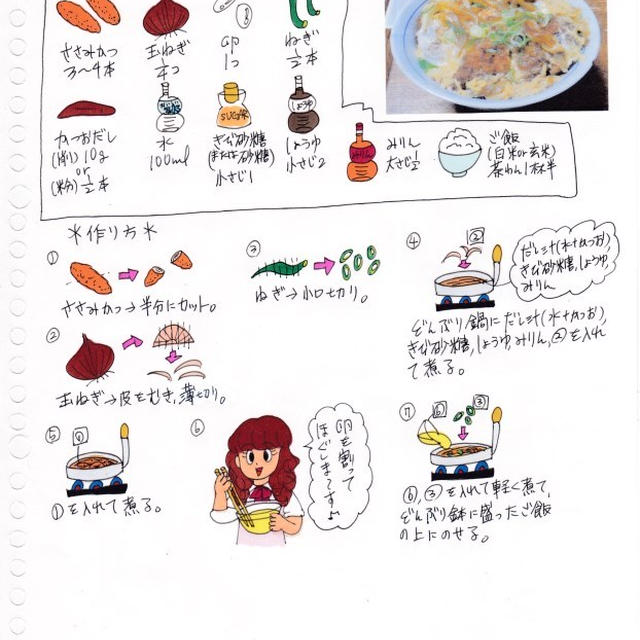 ささみかつ
3〜4本
玉ねぎ
1/4コ
卵
1コ
ねぎ
1/2本
かつおだし
(削)10g
or
(粉)1/2本
水
100ml
SUGAR
きび砂糖
(または砂糖)
小さじ1
しょうゆ
しょうゆ
小さじ2
みりん
みりん
大さじ1/2
ご飯
(白米or玄米)
茶わん1杯半
*作り方*
①
ささみかつ→半分にカット。
②
玉ねぎ→皮をむき,薄切り。
③
ねぎ→小口切り。
④
②
だし汁(水+かつお),
きび砂糖,しょうゆ,
みりん
どんぶり鍋にだし汁(水+かつお),
きび砂糖,しょうゆ,みりん,②を入れ
て煮る。
⑤
①を入れて煮る。
⑥
卵を割って
ほぐしま〜す♪
⑦
⑥
③
⑥,③を入れて軽く煮て,
どんぶり鉢に盛ったご飯
の上にのせる。